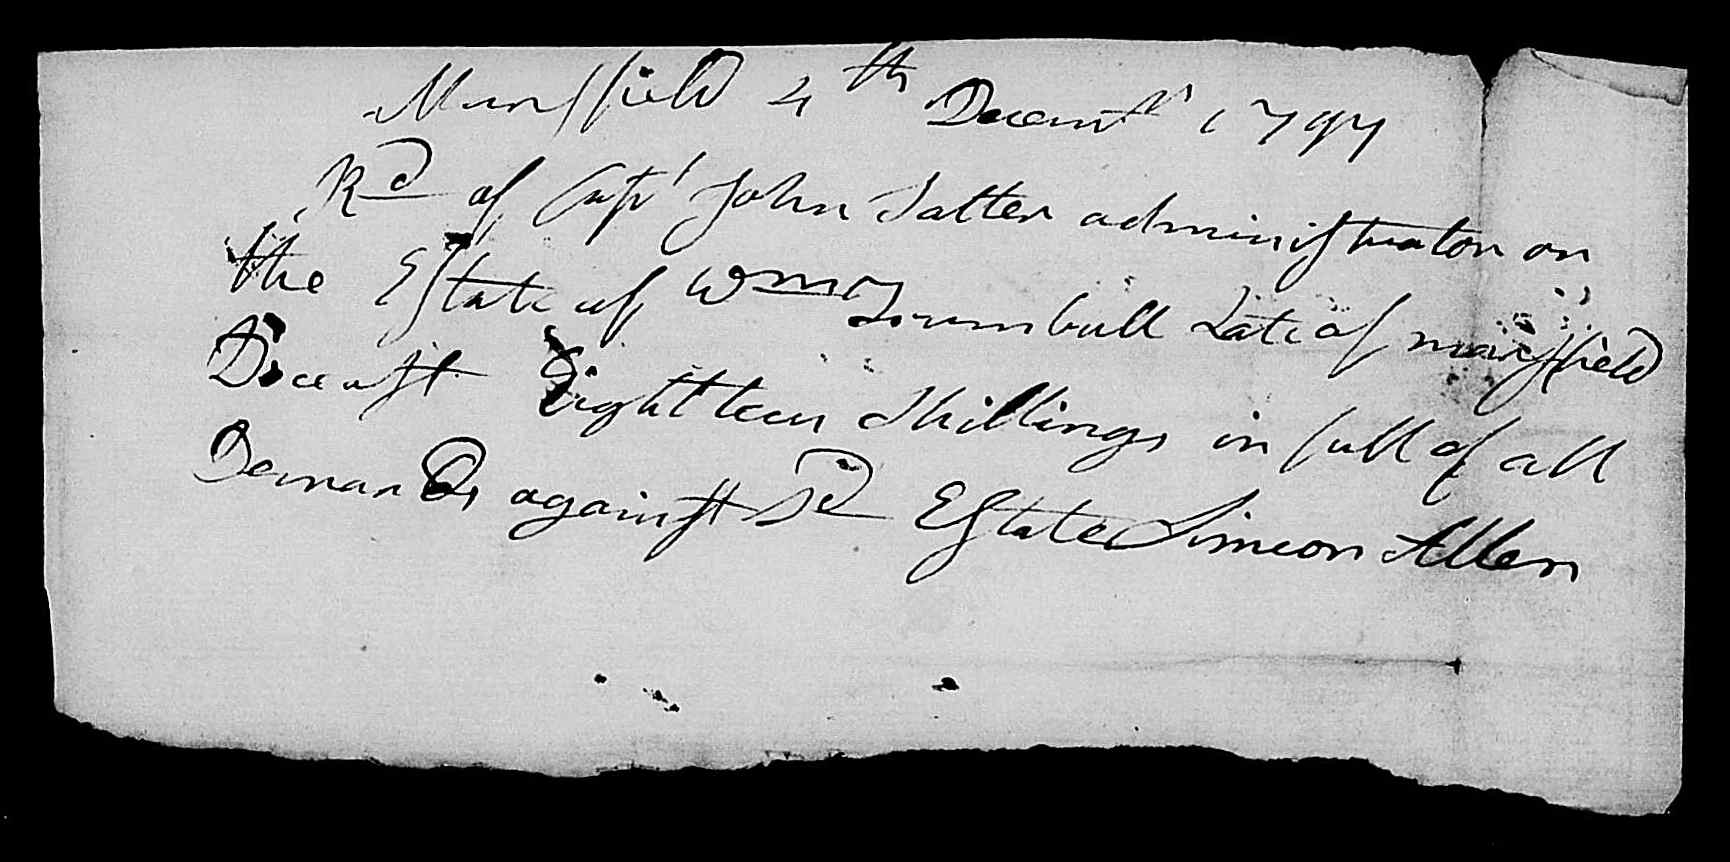 Mansfield 4th Decembr 1797
Rd of Capt John Salter administrator on
the Estate of Wm Turnbull Late of mansfield
Deceast Eightteen Shillings in full of all
Demands against Sd Estate Simeon Allen